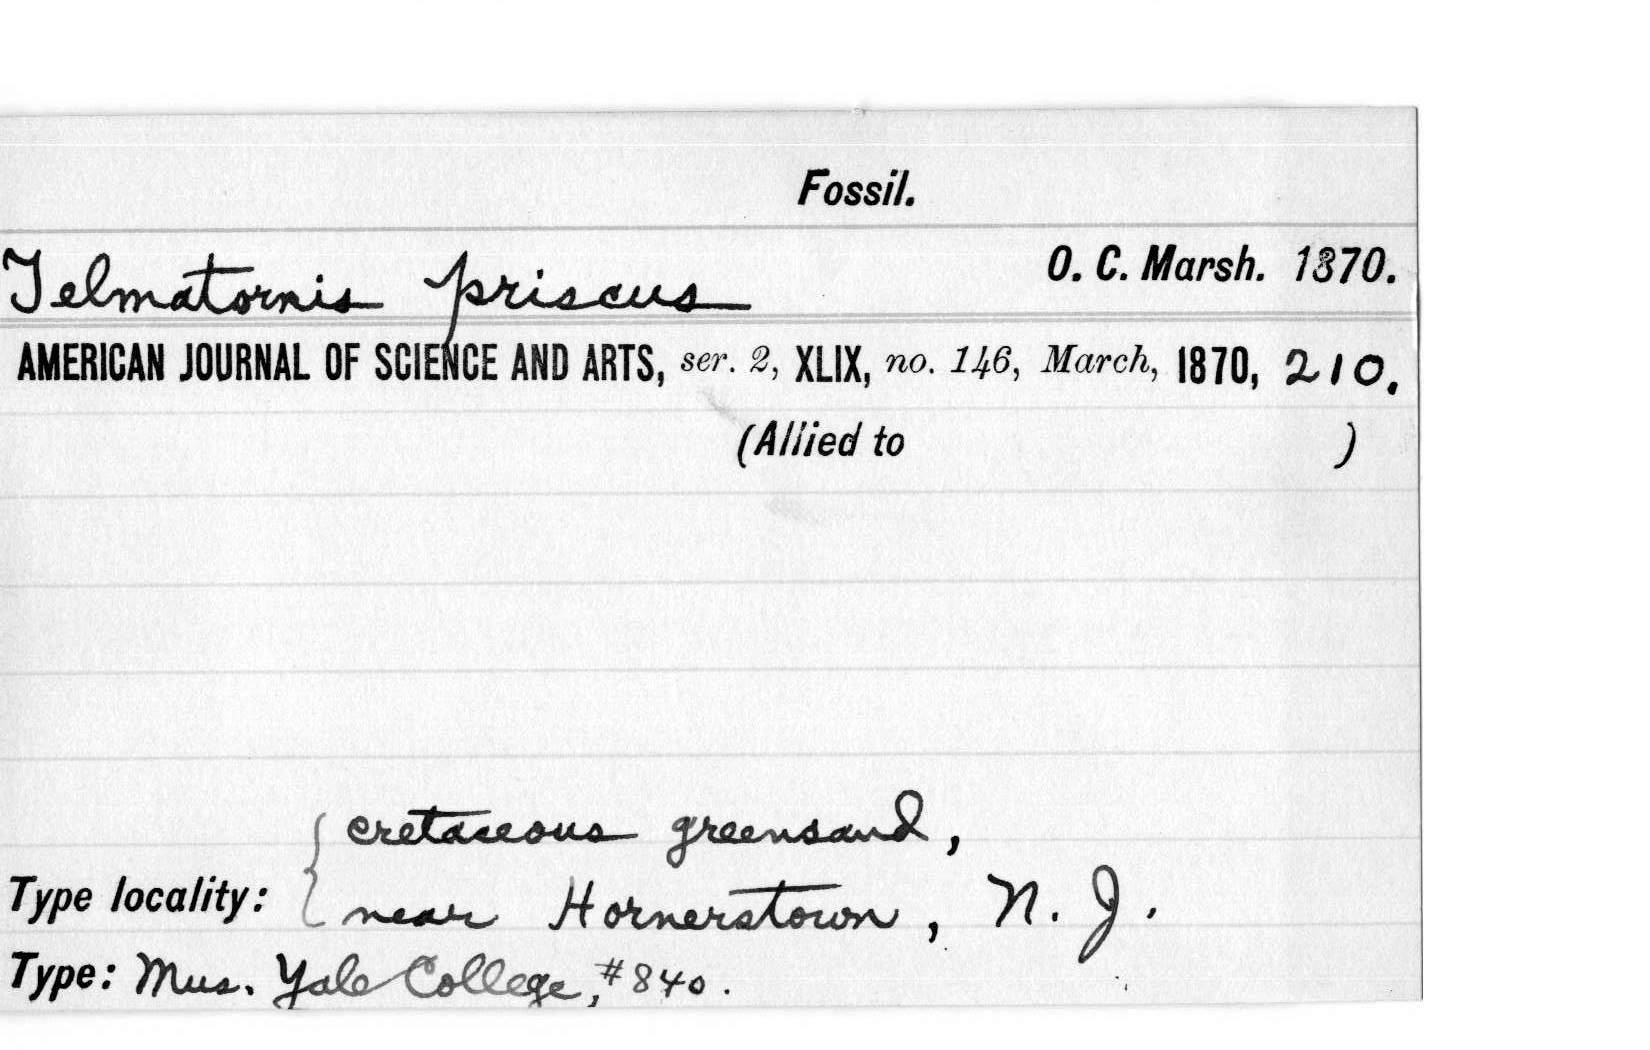 Fossil.
Telmatornis priscus O. C. Marsh. 1870.
AMERICAN JOURNAL OF SCIENCE AND ARTS, ser. 2, XLIX, no. 146, March, 1870, 210.
(Allied to )
cretaceous greensand,
Type locality: { near Hornerstown, N. J.
Type: Mus. Yale College, #840.